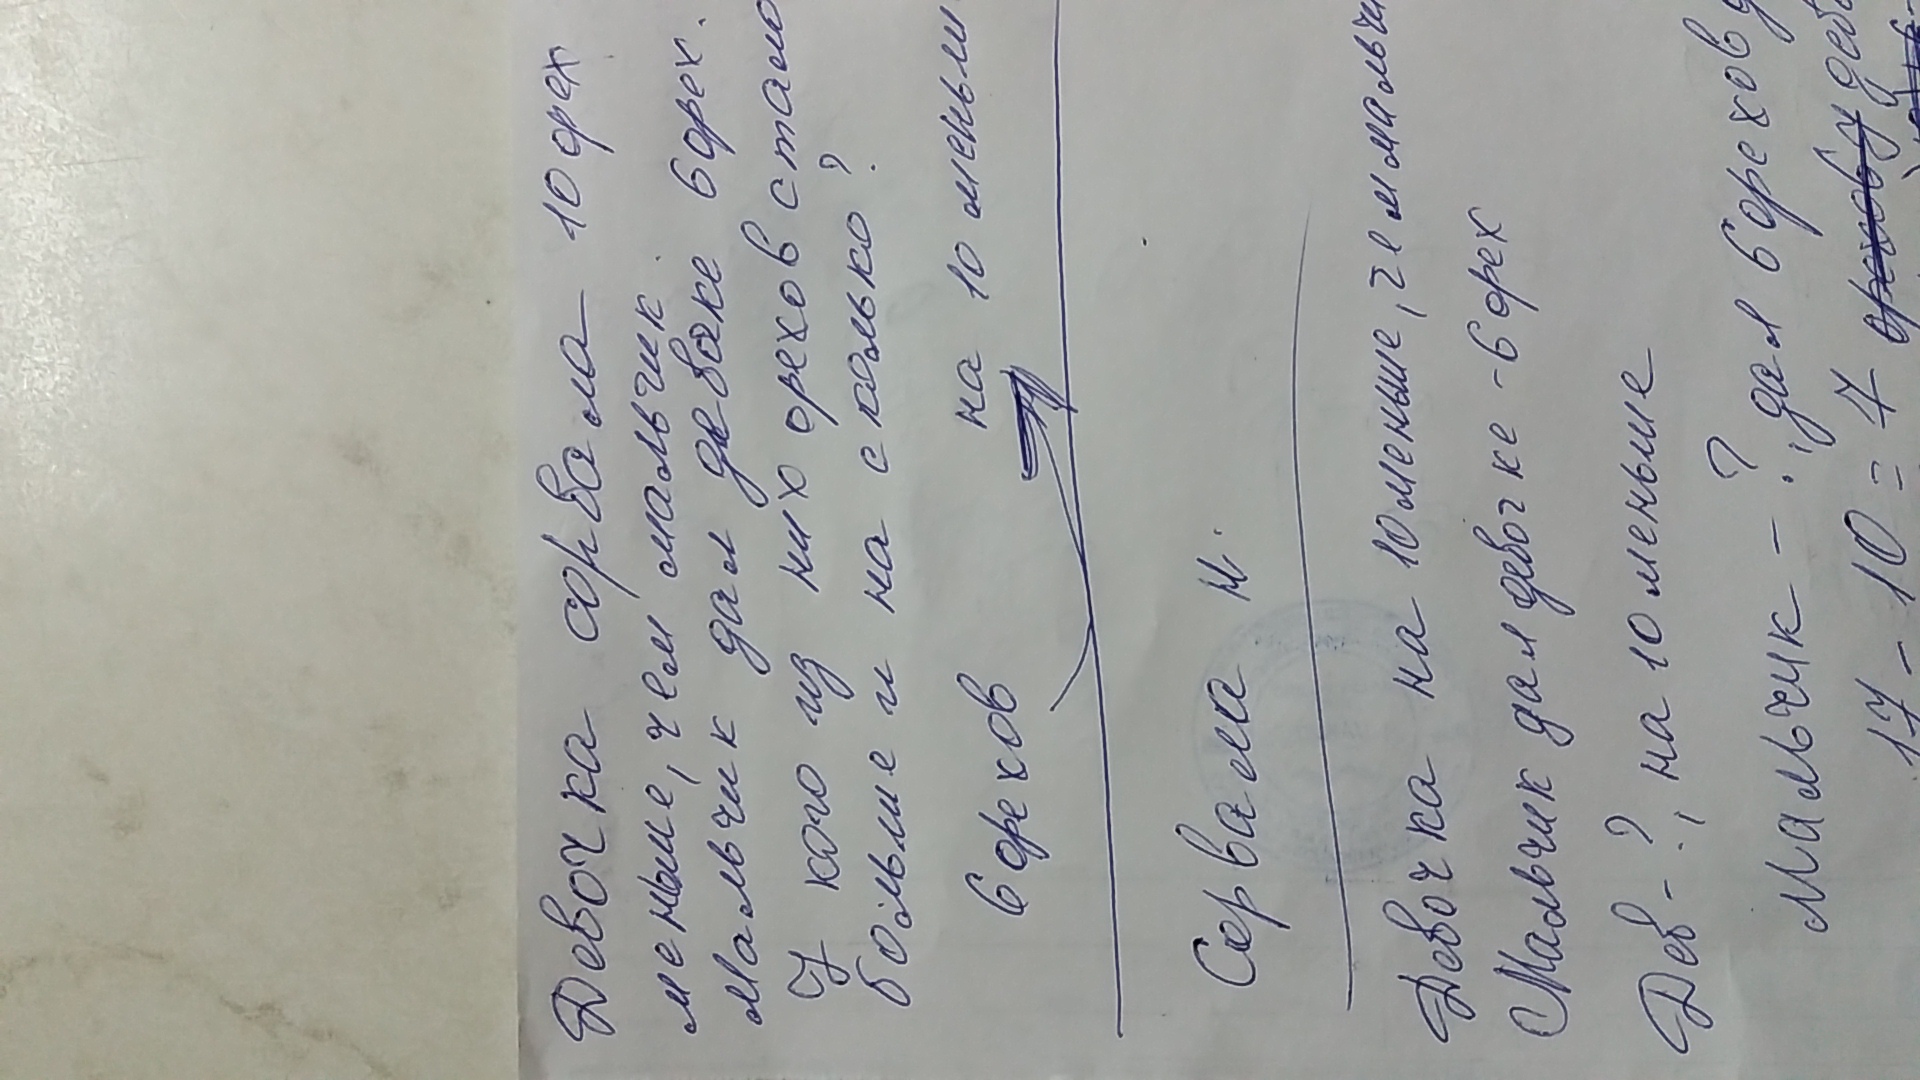 Девочка сорвала 10 орех
меньше, чем мальчик
мальчик дал девочке 6 орех.
У кого из них орехов стало
больше и на сколько?
6 орехов на 10 меньш
Сорвала
Девочка на 10 меньше, чем мальчи
Мальчик дал девочке - 6 орех
Дев - ?, на 10 меньше
Мальчик - ?, дал 6 орехов д
17 - 10 = 7